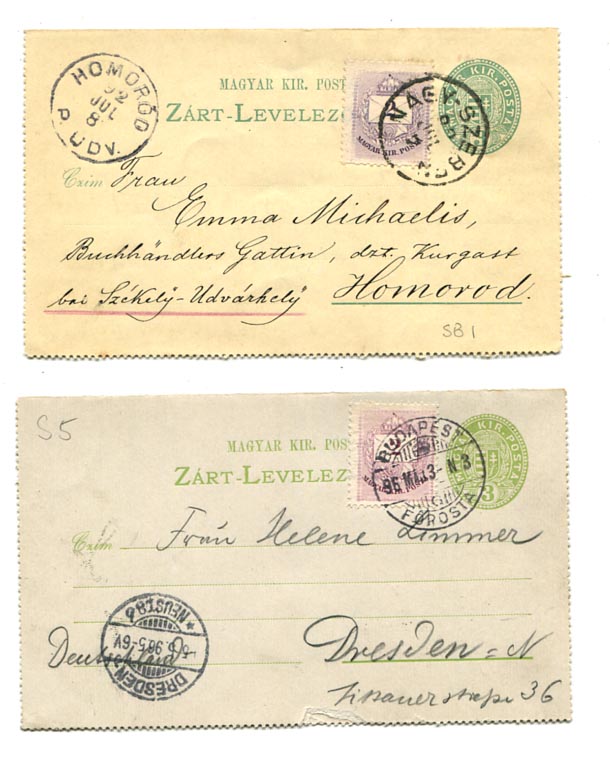 HOMORÓD
92
JUL
8
P. UDV.
MAGYAR KIR. POST
ZÁRT-LEVELEZ
MAGYAR KIR. POS
NAGY-SZEBEN
JUL
KIR. POSTA
Czim Frau
Emma Michaelis,
Buchhändlers Gattin, dzt. Kurgast
bei Székely-Udvárhely Homorod.
SB 1
S5
MAGYAR KIR. POS
ZÁRT-LEVELEZ
BUDAPEST
96 MÁJ 3 - N 3
FŐPOSTA
KIR. POSTA
3
Czim Frau Helene Limmer
DRESDEN
* NEUST. 8 a
5 96. 5-6V
Deutschland Dresden=N
36